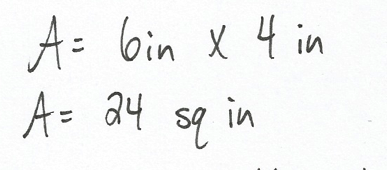 A= 6in x 4 in
A= 24 sq in